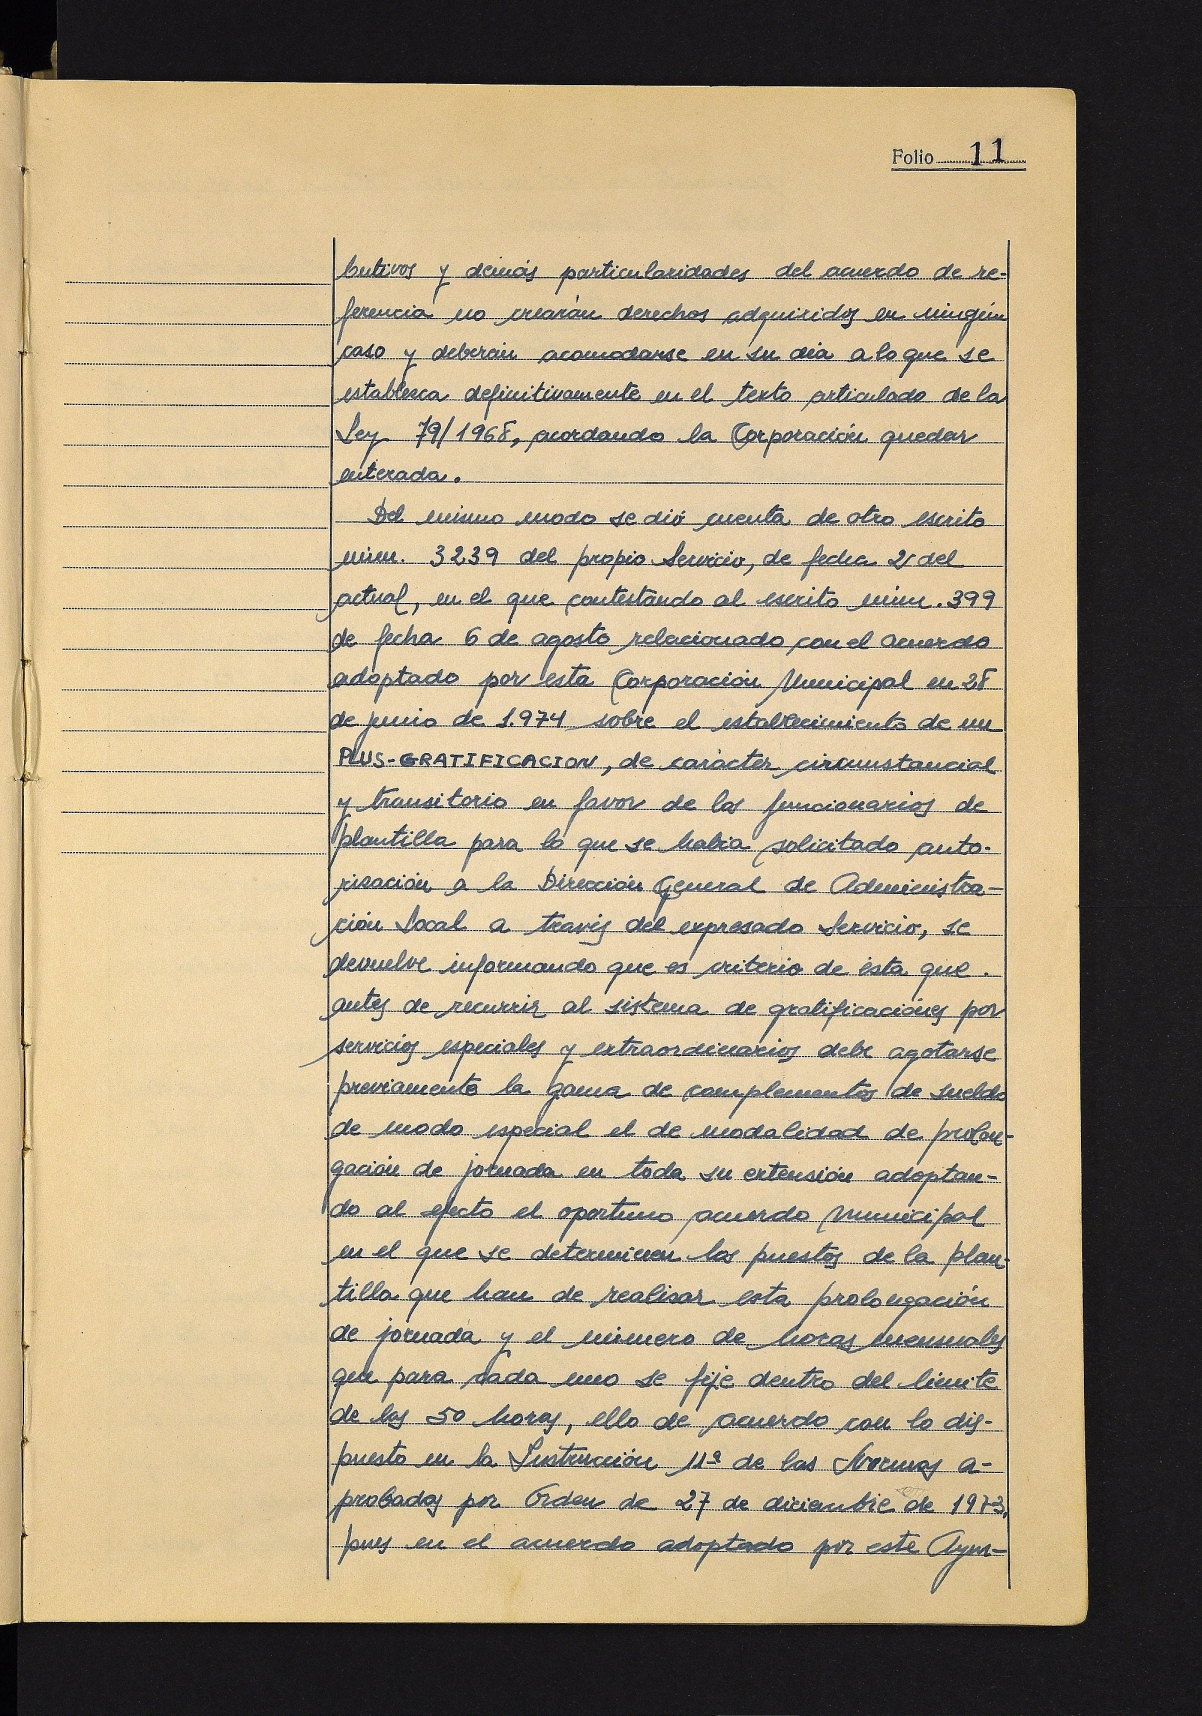 Folio 11
butivos y demás particularidades del acuerdo de re-
ferencia no crearán derechos adquiridos en ningún
caso y deberán acomodarse en su dia a lo que se
establezca definitivamente en el texto articulado de la
Ley 79/1968, acordando la Corporación quedar
enterada.
Del mismo modo se dió cuenta de otro escrito
núm. 3239 del propio Servicio, de fecha 21 del
actual, en el que contestando al escrito núm. 399
de fecha 6 de agosto relacionado con el acuerdo
adoptado por esta Corporación Municipal en 28
de junio de 1.974 sobre el establecimiento de un
PLUS-GRATIFICACION, de carácter circunstancial
y transitorio en favor de los funcionarios de
plantilla para lo que se habia solicitado auto-
rización a la Dirección General de Administra-
ción Local a través del expresado Servicio, se
devuelve informando que es criterio de ésta que
antes de recurrir al sistema de gratificaciónes por
servicios especiales y extraordinarios debe agotarse
previamente la gama de complementos de sueldo
de modo especial el de modalidad de prolon-
gación de jornada en toda su extensión adoptan-
do al efecto el oportuno acuerdo municipal
en el que se determinen los puestos de la plan-
tilla que han de realizar esta prolongación
de jornada y el número de horas mensuales
que para cada uno se fije dentro del limite
de las 50 horas, ello de acuerdo con lo dis-
puesto en la Instrucción 11ª de las Normas a-
probadas por Orden de 27 de diciembre de 1973,
pues en el acuerdo adoptado por este Ayun-